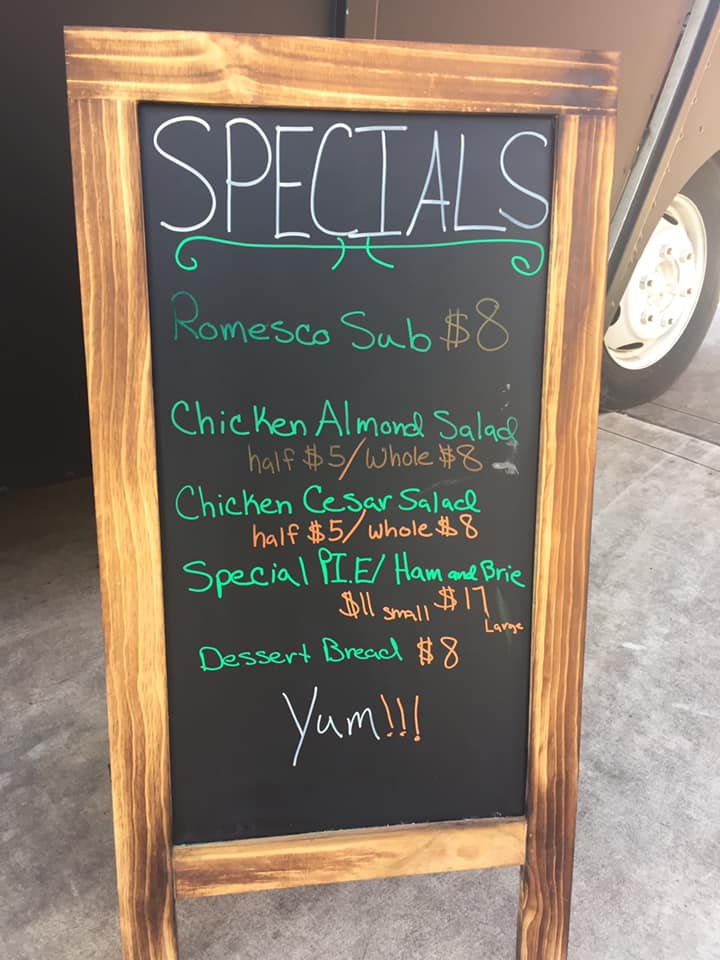 SPECIALS
Romesco Sub $8
Chicken Almond Salad
half $5/whole $8
Chicken Cesar Salad
half $5/whole $8
Special P.I.E/ Ham and Brie
$11 small $17 Large
Dessert Bread $8
Yum!!!